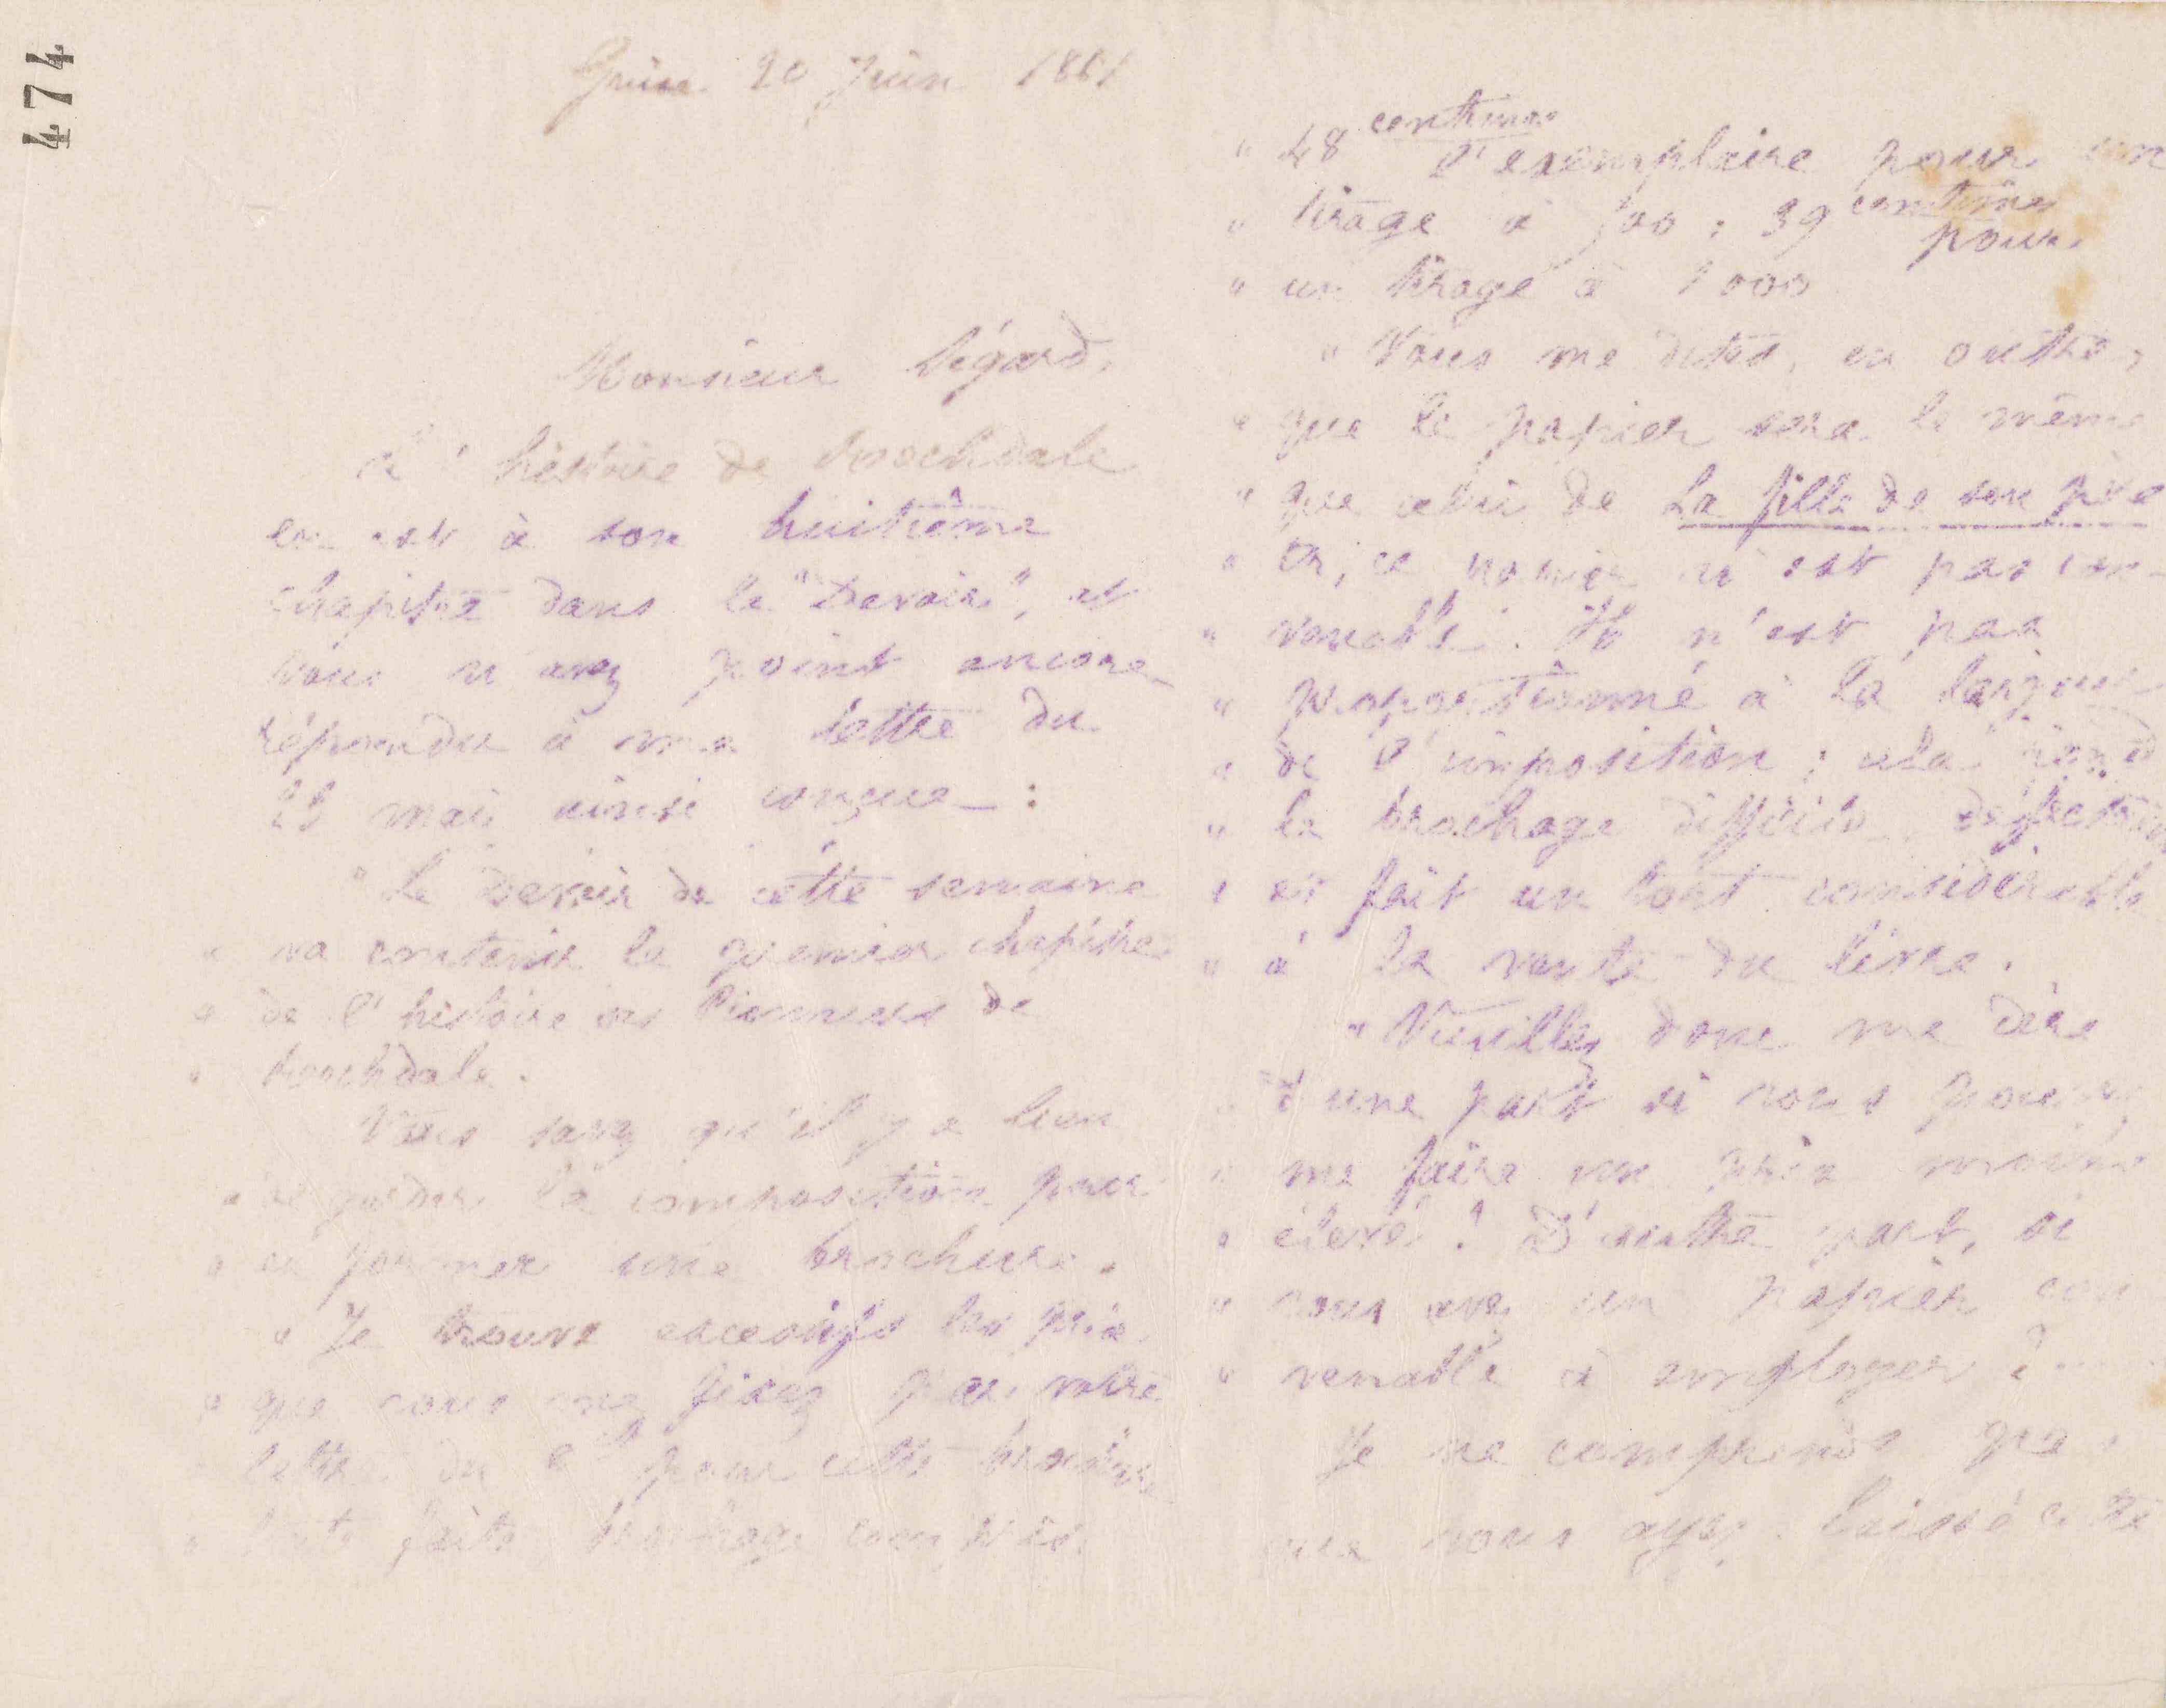 474
Guise 20 Juin 1881
Monsieur Bégard,
L'histoire de Rochdale
en est à son huitième
chapitre dans le "Devoir", et
vous n'avez point encore
répondu à ma lettre du
25 mai ainsi conçue :
"Le Devoir de cette semaine
" va contenir le premier chapitre
" de l'histoire des Pionniers de
" Rochdale.
Vous savez qu'il y a lieu
" de garder la composition pour
" en former une brochure.
" Je trouve excessifs les prix
" que vous me fixez par votre
" lettre du pour cette brochure
" toute faite, brochage compris.
" 48 centimes l'exemplaire pour un
" tirage à 500 ; 39 centimes pour
" un tirage à 1000
" Vous me dites, en outre,
" que le papier sera le même
" que celui de La fille de son père
" Or, ce papier n'est pas con-
" venable. Il n'est pas
" proportionné à la largeur
" de l'imposition ; cela rend
" le brochage difficile, défectueux
" et fait un tort considérable
" à la vente du livre.
" Veuillez donc me dire
" d'une part si vous pouvez
" me faire un prix moins
" élevé ? D'autre part, si
" vous avez un papier con
" venable à employer ?
Je ne comprends pas
que vous ayez laissé cette